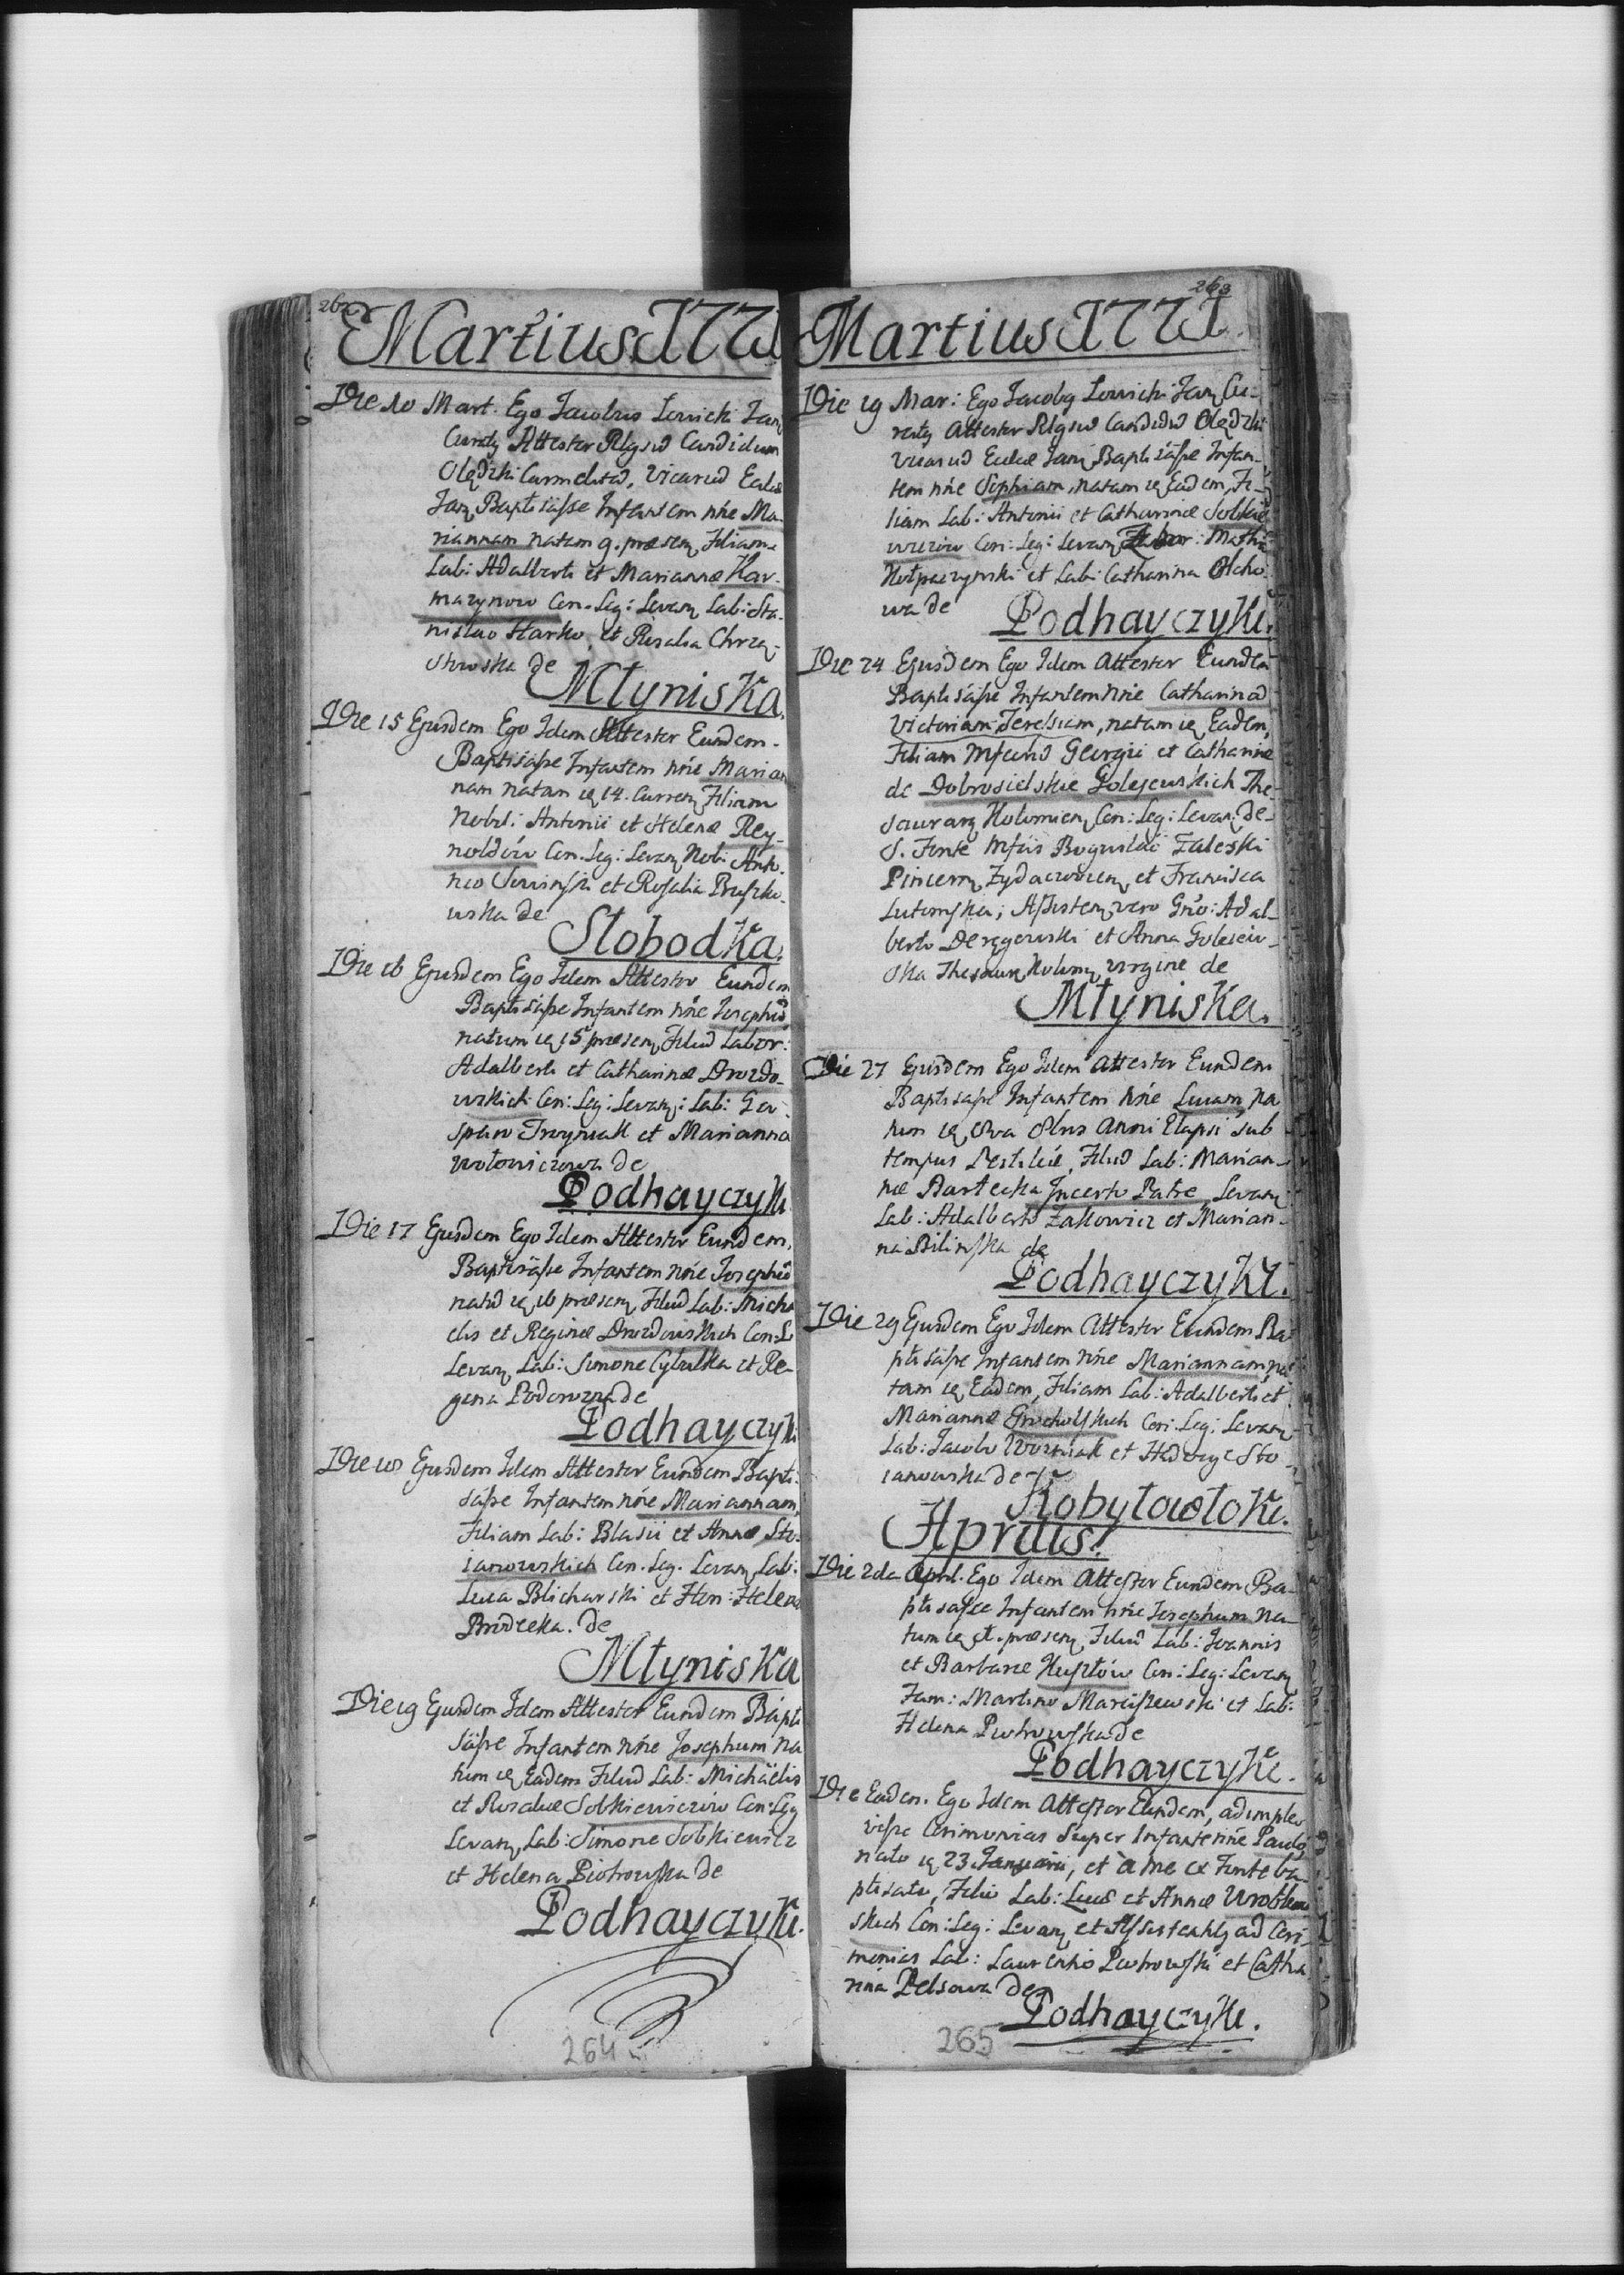 262
Martius 1771
Die 10 Mart. Ego Jacobus Lewicki Jan
Curatq Attestor Rlgsũ Candidum
Olędzki Carmelitã, Vicariũ Eccles
Janq Baptisasse Infantem nñe Ma-
riannam natam 9. præsenq Filiam
Lab: Adalberti et Mariannæ Kar-
mazynow Con. Leg: Levanq Lab: Sta-
nislao Harko, et Rosalia Chrzą-
stowska de
Młyniska.
Die 15 Ejusdem Ego Idem Attestor Eundem
Baptisasse Infantem nñe Marian
nam natam ieq 14. Currenq Filiam
Nobil: Antonii et Helenæ Rey-
noldów Con. Leg: Levanq Nob: Anto-
nio et Rosalia Pruszko-
wska de
Słobodka.
Die 16 Ejusdem Ego Idem Attestor Eundem
Baptisasse Infantem nñe Josephũ
natum ieq 15 præsenq Filiũ Labor:
Adalberti et Catharinæ Drozdo-
wskich Con: Leg: Levanq: Lab: Ga-
sparo Troyniak et Marianna
Wołowiczowa de
Podhayczyki
Die 17 Ejusdem Ego Idem Attestor Eundem,
Baptisasse Infantem nñe Josephũ
natũ ieq 16 præsenq Filiũ Lab: Micha
elis et Reginæ Drozdowskich Con: L
Levanq Lab: Simone Cybulka et Re-
gina de
Podhayczyki
Die 18 Ejusdem Idem Attestor Eundem Bapti-
sasse Infantem nñe Mariannam,
Filiam Lab: Blasii et Annæ Sto-
ianowskich Con. Leg. Levanq Lab:
Luca Blicharski et Hon: Helena
Brodecka. de
Młyniska
Die 19 Ejusdem Idem Attestor Eundem Bapti
sasse Infantem nñe Josephum na
tum ieq Eadem Filiũ Lab: Michaëlis
et Rosaliæ Sobkiewiczów Con: Leg
Levanq Lab: Simone Sobkiewicz
et Helena Piotrowska de
Podhayczyki.
264
263
Martius 1771.
Die 19 Mar: Ego Jacobq Lewicki Janq Cu-
ratq Attestor Rlgsũ Candidũ Olędzki
Vicariũ Eccliæ Janq Baptisasse Infan-
tem nñe Sophiam, natam ieq Eadem, Fi-
liam Lab: Antonii et Catharinæ Sobkie
wiczów Con: Leg: Levanq Labor: Mathia
Kołpaczynski et Lab: Catharina Olcho-
wa de
Podhayczyki.
Die 24 Ejusdem Ego Idem Attestor Eundem
Baptisasse Infantem nñe Catharinã
Victoriam Teresiam, natam ieq Eadem,
Filiam Mfcorũ Georgii et Catharinæ
de Dobrosielskie Golejewskich The-
saurarq Kołomienq Con: Leg: Levanq de
S. Fonte Mfcis Bogusłao Zaleski
Pincernq Zydaczovienq et Francisca
Lutomska; Assistenq vero Gñso: Adal-
berto Deręgowski et Anna Golejew-
ska Thesaurq Kołomq virgine de
Młyniska.
Die 27 Ejusdem Ego Idem Attestor Eundem
Baptisasse Infantem nñe Lucam, na
tum ieq 8bris Anni Elapsi sub
tempus Pestilen, Filiũ Lab: Marian-
næ Bartecka Incerto Patre, Levanq
Lab: Adalberto Zakowicz et Marian-
na Bilinska de
Podhayczyki.
Die 29 Ejusdem Ego Idem Attestor Eundem Ba-
ptisasse Infantem nñe Mariannam, na
tam ieq Eadem, Filiam Lab: Adalberti et
Mariannæ Grocholskich Con: Leg: Levanq
Lab: Jacobo Wozniak et Hedvige Sto-
ianowska de
Kobyłowłoki.
Aprilis.
Die 2da Aprl. Ego Idem Attestor Eundem Ba-
ptisasse Infantem nñe Josephum na-
tum ieq 1. præsenq Filiũ Lab: Joannis
et Barbaræ Kusztów Con: Leg: Levanq
Fam: Martino Marciszewski et Lab:
Helena Piotrowska de
Podhayczyki.
Die Eadem. Ego Idem Attestor Eundem, adimple-
visse Cerimonias Super Infante nñe Paulo,
nato ieq 23 Januarii, et à me ex Fonte ba-
ptisato, Filio Lab: Lucæ et Annæ Wroblew
skich Con: Leg: Levanq et Assistentibq ad Ceri-
monias Lab: Laurentio Piotrowski et Catha
rina Pelsowa de
Podhayczyki.
265